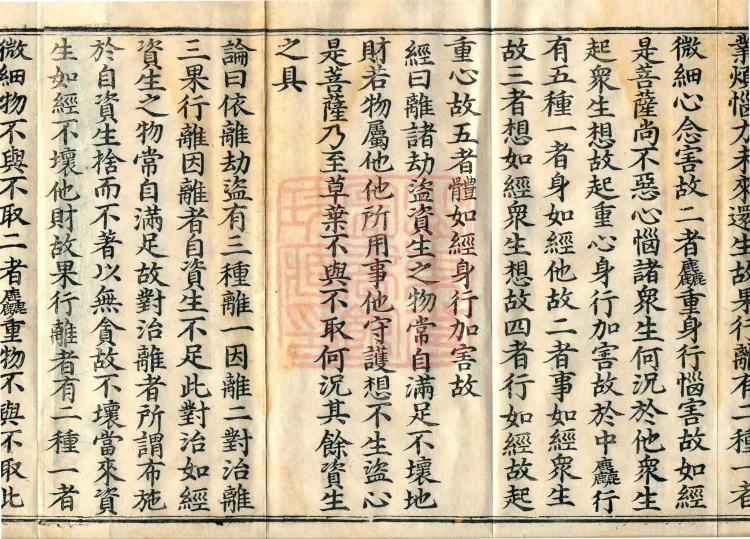 業煩惱乃未來還生故果行離有二種一者
微細心念害故二者麤重身行惱害故如經
是菩薩尚不惡心惱諸眾生何況於他眾生
起眾生想故起重心身行加害故於中麤行
有五種一者身如經他故二者事如經眾生
故三者想如經眾生想故四者行如經故起
重心故五者體如經身行加害故
經曰離諸劫盜資生之物常自滿足不壞地
財若物屬他他所用事他守護想不生盜心
是菩薩乃至草葉不與不取何況其餘資生
之具
論曰依離劫盜有三種離一因離二對治離
三果行離因離者自資生不足此對治如經
資生之物常自滿足故對治離者所謂布施
於自資生捨而不著以無貪故不壞當來資
生如經不壞他財故果行離者有二種一者
微細物不與不取二者麤重物不與不取此